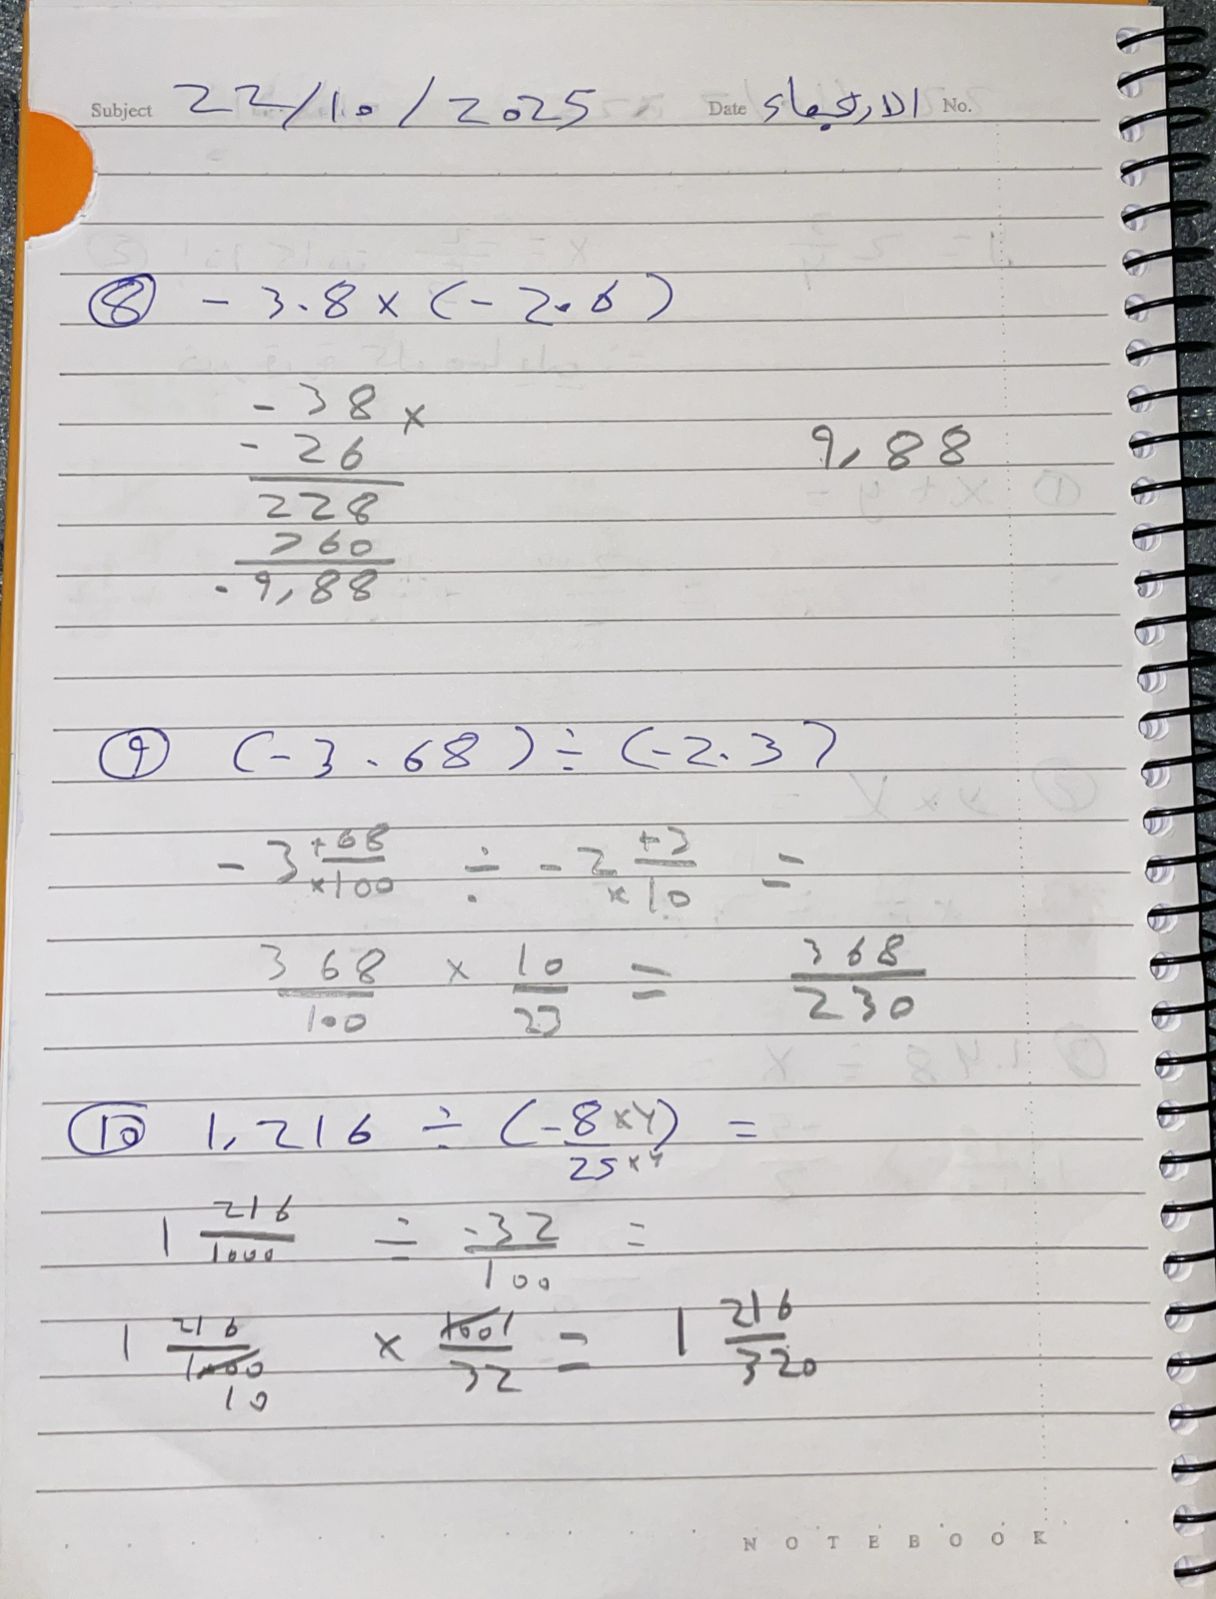 Subject 22/10/2025 Date الاربعاء No.
⑧ - 3.8 x (- 2.6)
- 38 x
- 26
228
760
- 9,88
9,88
⑨ (-3.68) ÷ (-2.3)
- 3 +68/x100 ÷ - 2 +3/x10 =
368/100 x 10/23 = 368/230
⑩ 1,216 ÷ (-8x4/25x4) =
1 216/1000 ÷ -32/100 =
1 216/1000 10 x 100 1/32 = 1 216/320
NOTEBOOK